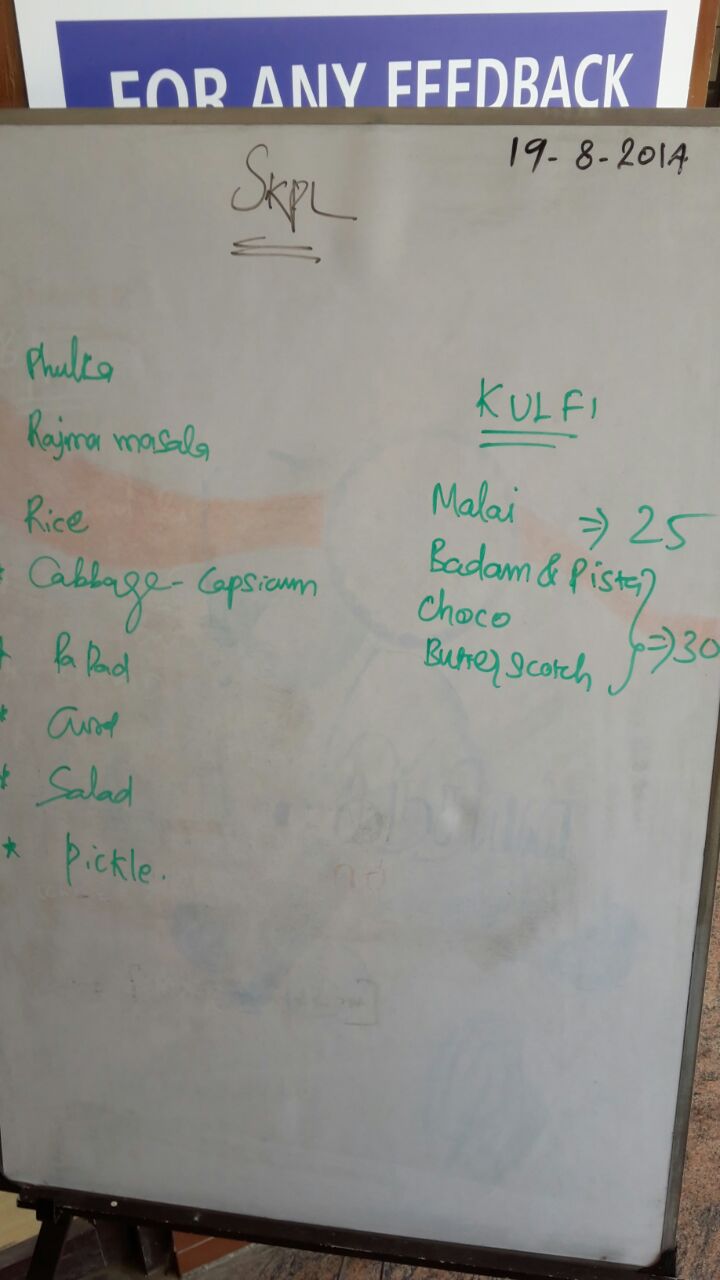 FOR ANY FEEDBACK
19-8-2014
SKPL
Phulka
Rajma masala
Rice
* Cabbage - Capsicum
* Papad
* Curd
* Salad
* Pickle.
KULFI
Malai ⇒ 25
Badam & Pista
Choco
Butter scotch
} ⇒ 30